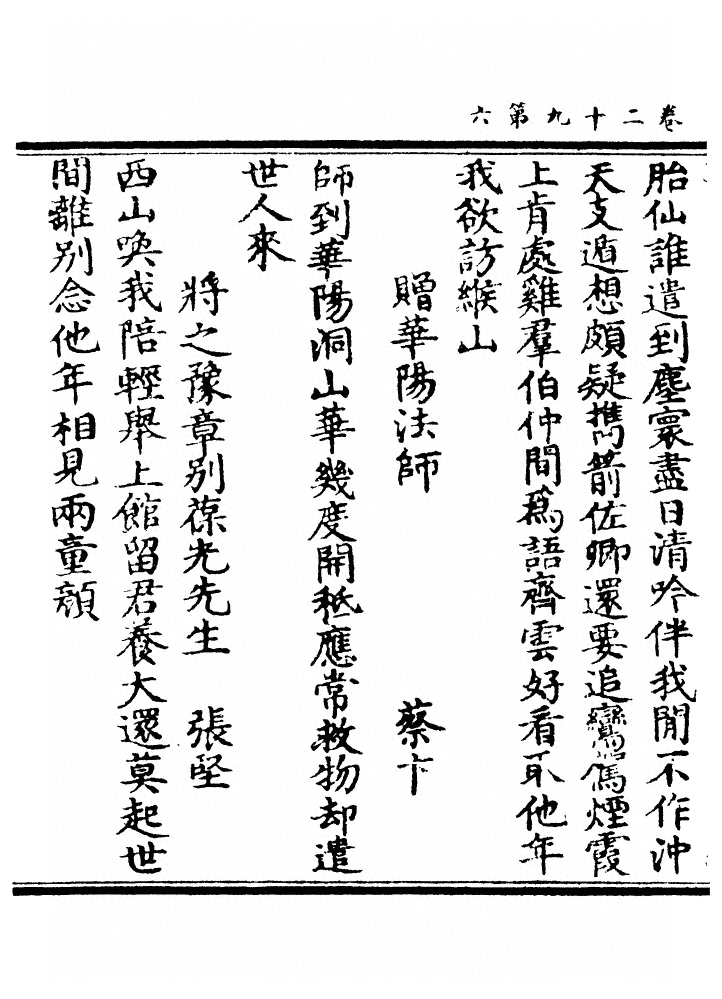 卷二十九第六
胎仙誰遣到塵寰盡日清吟伴我閒不作沖
天支遁想頗疑擕箭佐卿還要追鸞煙霞
上肯處雞羣伯仲間爲語齊雲好看取他年
我欲訪緱山
贈華陽法師 蔡卞
師到華陽洞山華幾度開秪應常救物却遣
世人來
將之豫章別葆光先生 張堅
西山喚我陪輕舉上館留君養大還莫起世
間離別念他年相見兩童顔